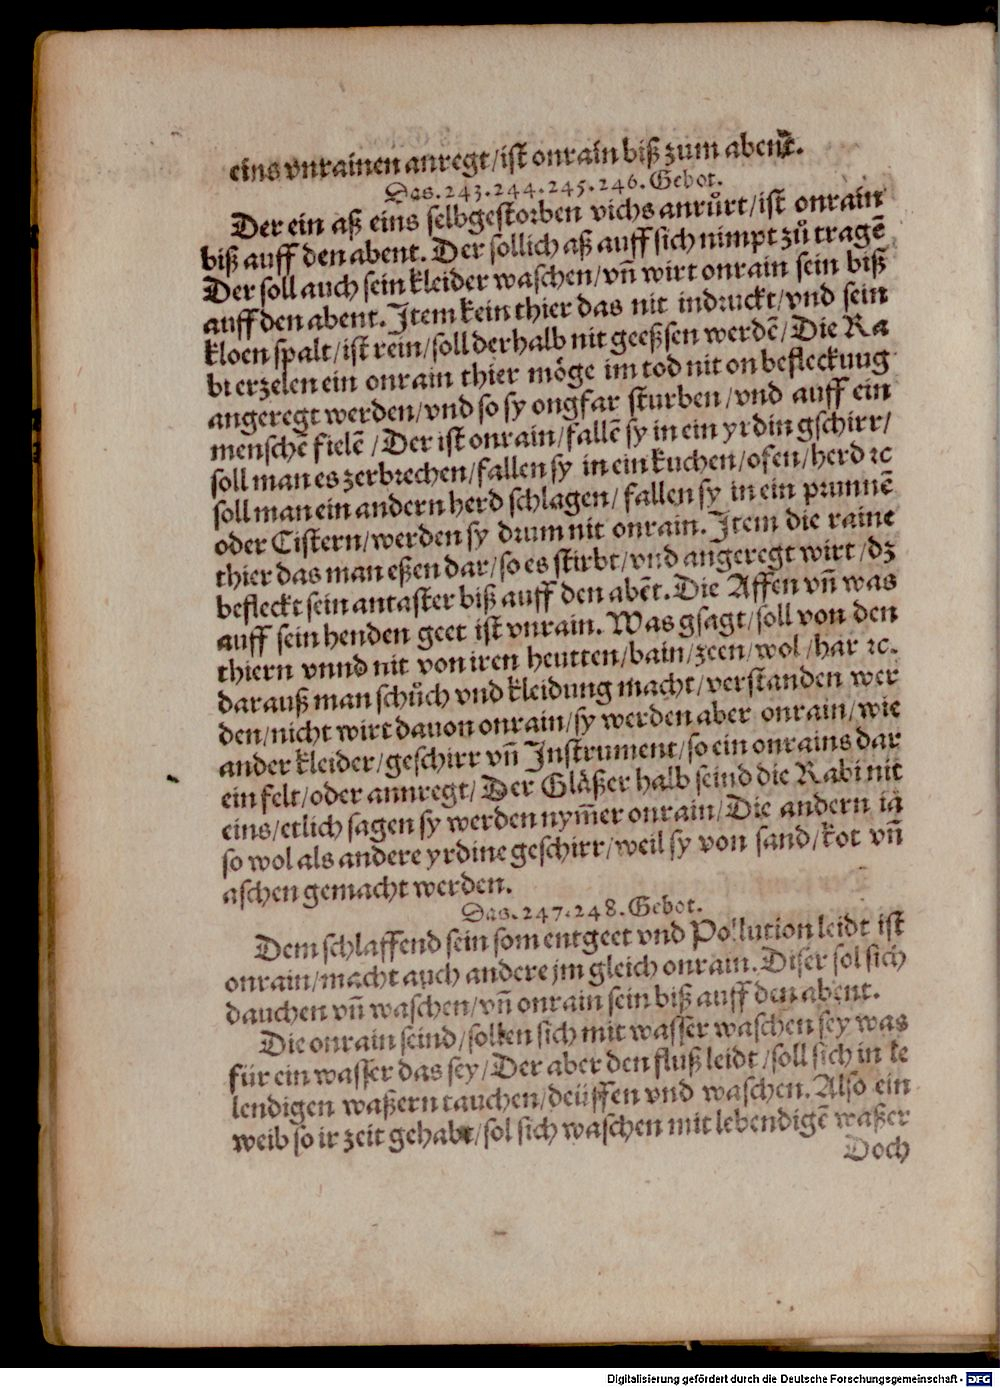 eins vnrainen anregt/ist onrain biß zum abent.
Das. 243. 244. 245. 246. Gebot.
Der ein aß eins selbgestorben vichs anrůrt/ist onrain
biß auff den abent. Der sollich aß auff sich nimpt zů tragē
Der soll auch sein kleider waschen/vn̄ wirt onrain sein biß
auff den abent. Item kein thier das nit indruckt/vnd sein
kloen spalt/ist rein/soll derhalb nit geeßsen werdē/Die Ra
bi erzelen ein onrain thier möge im tod nit on befleckung
angeregt werden/vnd so sy ongfar sturben/vnd auff ein
menschē fielē/Der ist onrain/fallē sy in ein yrdin gschirr/
soll man es zerbrechen/fallen sy in ein kuchen/ofen/herd ꝛc
soll man ein andern herd schlagen/fallen sy in ein prunnē
oder Cistern/werden sy drum nit onrain. Item die raine
thier das man eßen dar/so es stirbt/vnd angeregt wirt/dz
befleckt sein antaster biß auff den abēt. Die Affen vn̄ was
auff sein henden geet ist vnrain. Was gsagt/soll von den
thiern vnnd nit von iren heutten/bain/zeen/wol/har ꝛc.
darauß man schůch vnd kleidung macht/verstanden wer
den/nicht wirt dauon onrain/sy werden aber onrain/wie
ander kleider/geschirr vn̄ Instrument/so ein onrains dar
ein felt/oder annregt/Der Gläßer halb seind die Rabi nit
eins/etlich sagen sy werden nym̄er onrain/Die andern ia
so wol als andere yrdine geschirr/weil sy von sand/kot vn̄
aschen gemacht werden.
Das. 247. 248. Gebot.
Dem schlaffend sein som entgeet vnd Pollution leidt ist
onrain/macht auch andere jm gleich onrain. Diser sol sich
dauchen vn̄ waschen/vn̄ onrain sein biß auff den abent.
Die onrain seind/sollen sich mit wasser waschen sey was
für ein wasser das sey/Der aber den fluß leidt/soll sich in le
lendigen waßern tauchen/deüffen vnd waschen. Also ein
weib so ir zeit gehabt/sol sich waschen mit lebendigē waßer
Doch
Digitalisierung gefördert durch die Deutsche Forschungsgemeinschaft - DFG